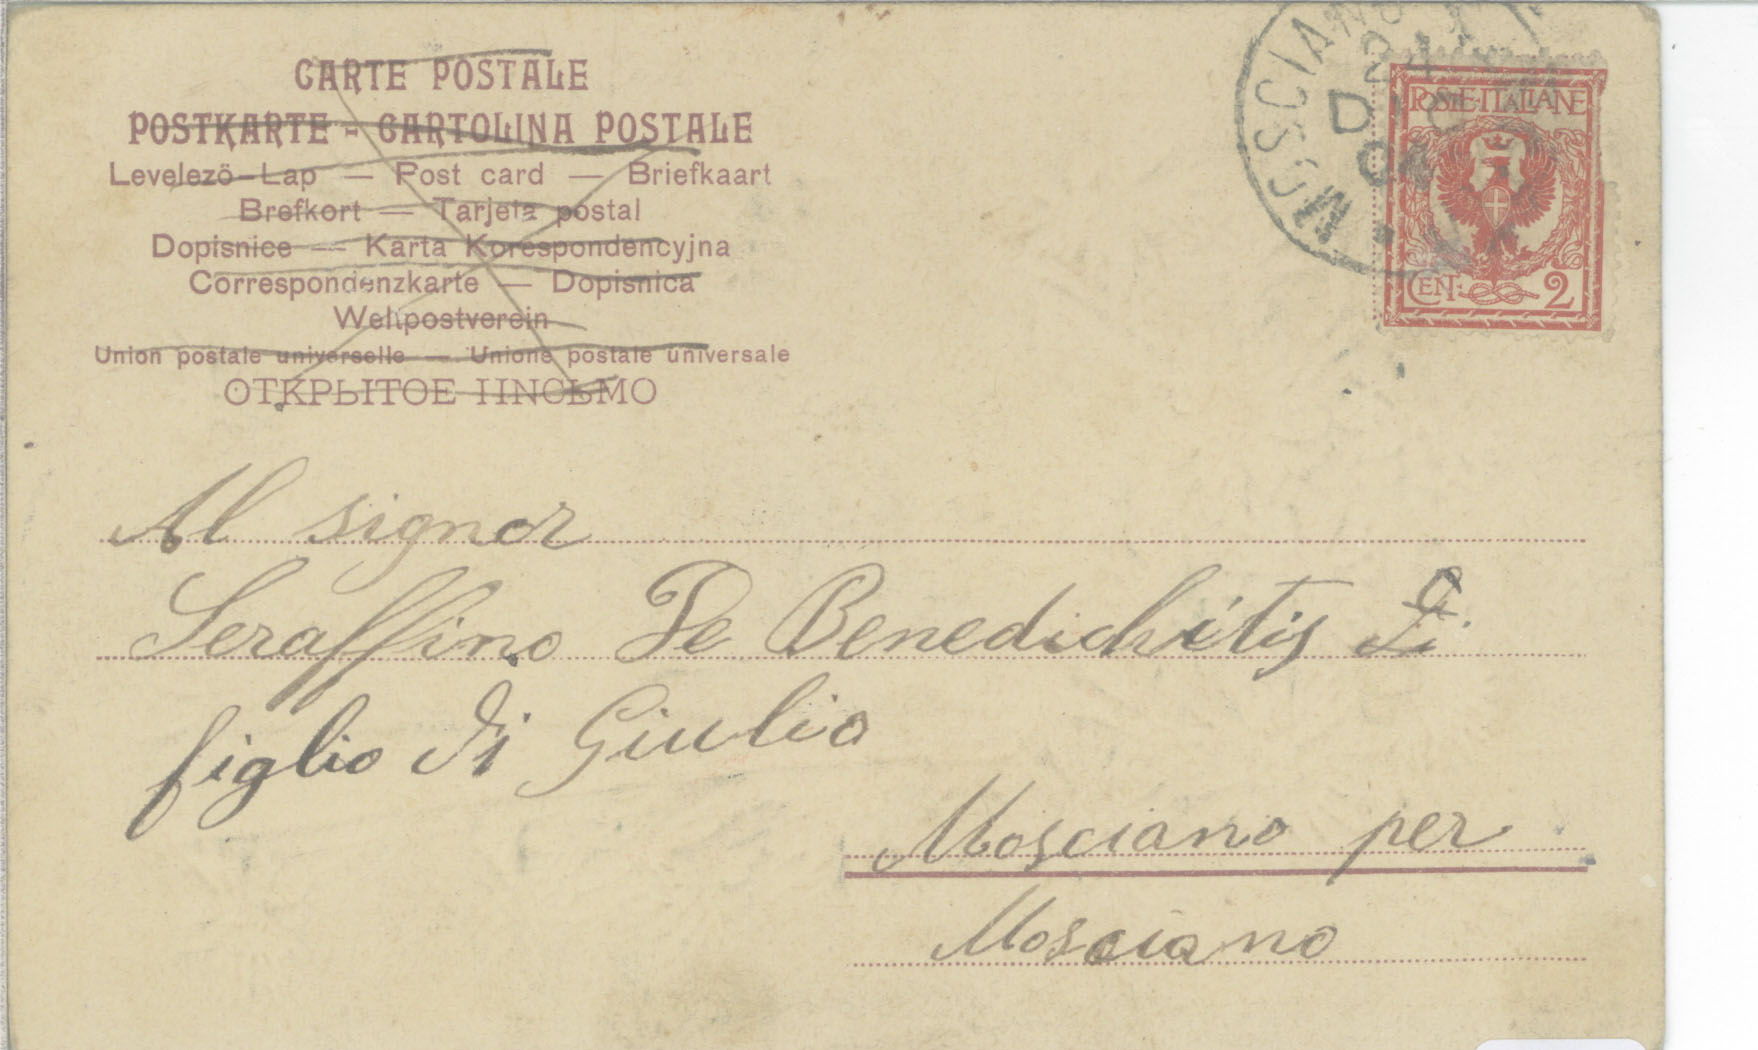 CARTE POSTALE
POSTKARTE - CARTOLINA POSTALE
Levelezö-Lap — Post card — Briefkaart
Brefkort — Tarjeta postal
Dopisnice — Karta Korespondencyjna
Correspondenzkarte — Dopisnica
Weltpostverein
Union postale universelle — Unione postale universale
ОТКРЫТОЕ ПИСЬМО
MOSCIANO
24
DIC
04
POSTE·ITALIANE
CENT. 2
Al signor
Seraffino De Benedichitis
figlio di Giulio
Mosciano per
Mosciano